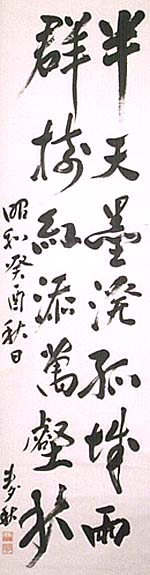 半天墨潑孤城雨
群樹紅添萬壑秋
昭和癸酉秋日